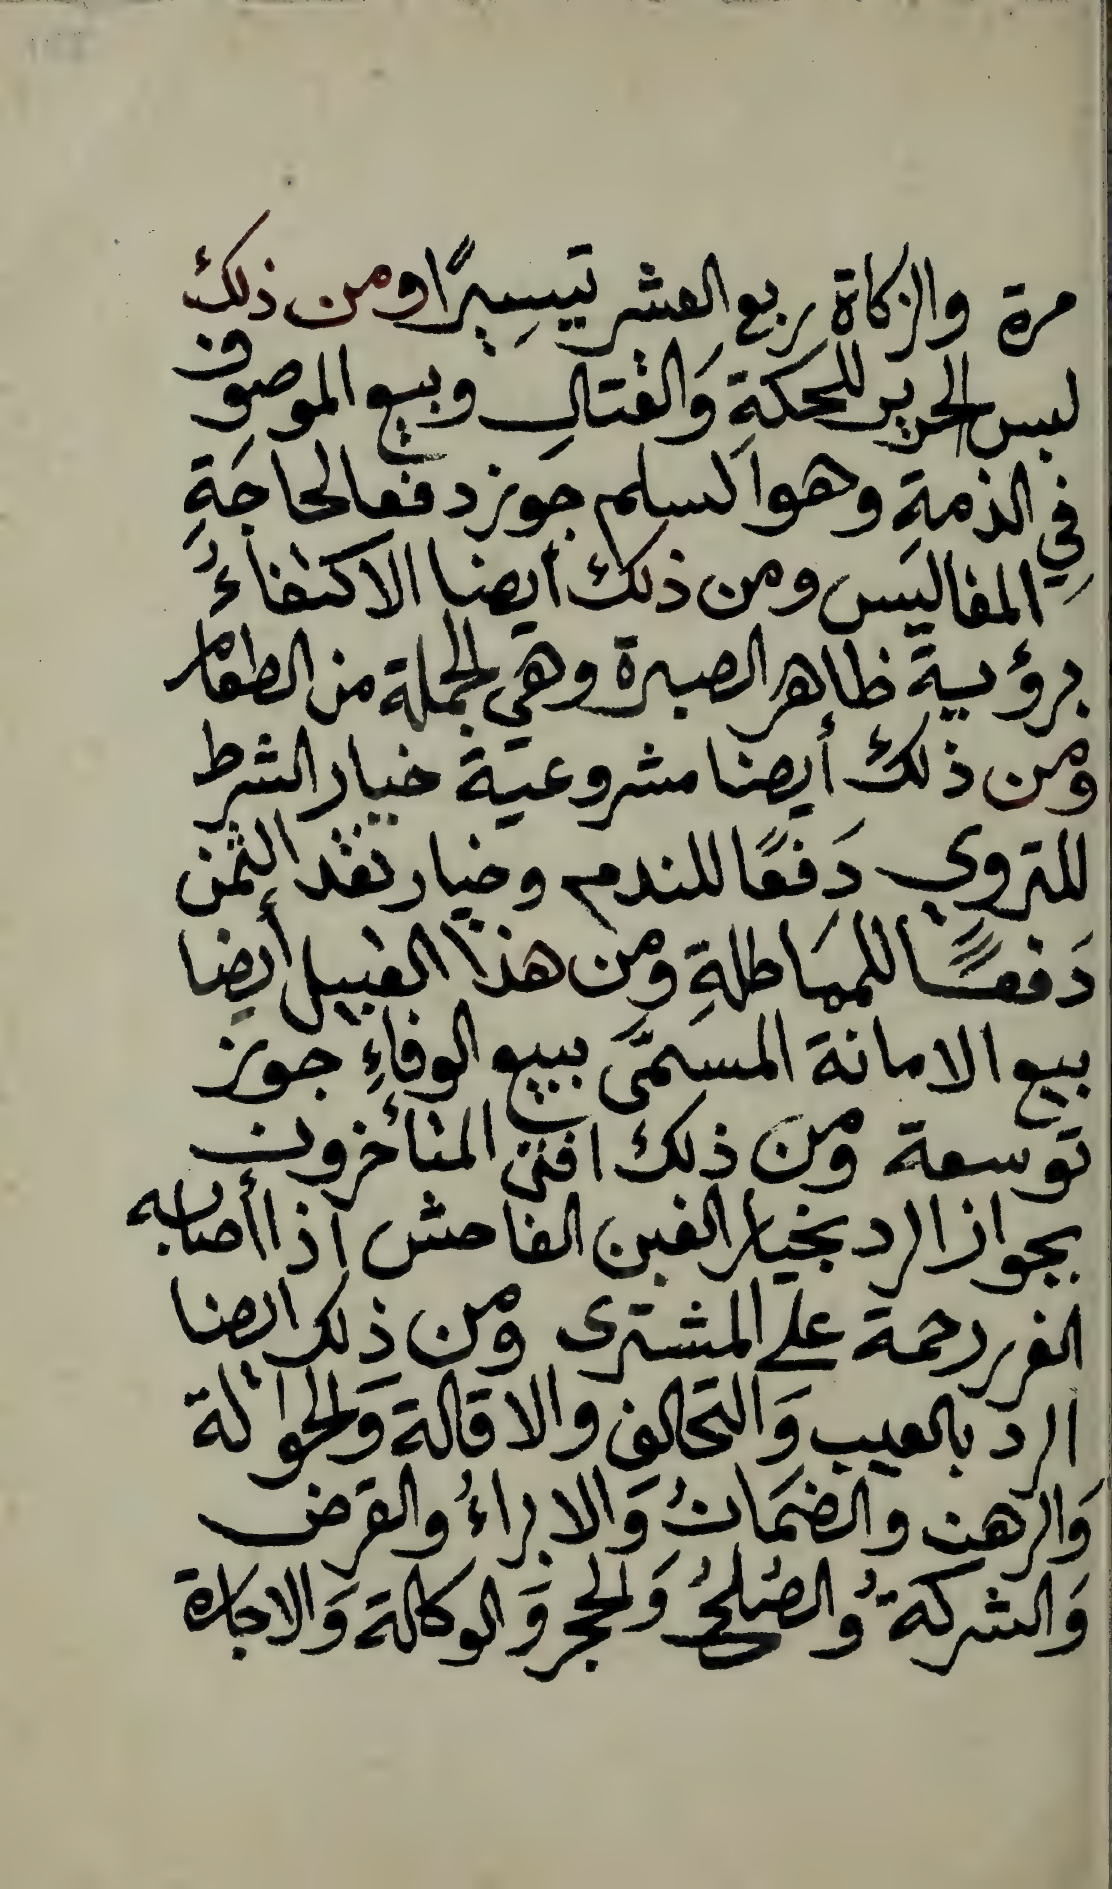 مرة والزكاة ربع العشر تيسيرًا ومن ذلك
لبس الحرير للحكةِ وَالقتالِ وبيع الموصوف
فِي الذمةِ وهو السلم جوز دفعا لحاجَةِ
المفاليَس ومن ذلك أيضا الاكتفاءُ
برؤيـة ظاهر الصبرة وهي الجملة من الطعام
ومن ذلك أيضا مشروعية خيار الشرط
للتروي دَفعًا للندم وخيار نقد الثمن
دَفعـًا للمماطلةِ ومن هذا القبيل أيضا
بيع الامانة المسمَّى ببيع الوفاءِ جوز
توسعة ومن ذلك افتى المتأخرون
بجواز الرد بخيار الغبن الفاحش اذا أصابه
الغرر رحمة على المشترى ومن ذلك ايضا
الرد بالعيب وَالتحالف والاقالة وَالحوالة
وَالرهن والضمَانُ وَالابراءُ والقرض
وَالشركة وُالصُلحُ وَالحجر وَالوكالة وَالاجارة